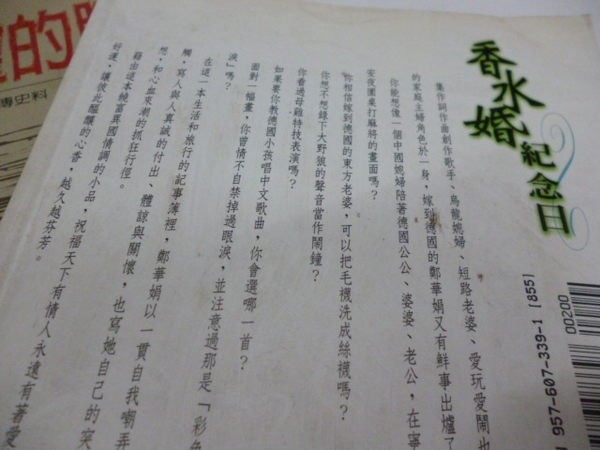 香水婚
紀念日
集作詞作曲創作歌手、烏龍媳婦、短路老婆、愛玩愛鬧也
的家庭主婦角色於一身，嫁到德國的鄭華娟又有鮮事出爐了
你能想像一個中國媳婦陪著德國公公、婆婆、老公，在寧
安夜圍桌打麻將的畫面嗎？
你相信嫁到德國的東方老婆，可以把毛襪洗成絲襪嗎？
你想不想錄下大野狼的聲音當作鬧鐘？
你看過母雞特技表演嗎？
如果要你教德國小孩唱中文歌曲，你會選哪一首？
面對一幅畫，你曾情不自禁掉過眼淚，並注意過那是「彩色
淚」嗎？
在這一本生活和旅行的記事簿裡，鄭華娟以一貫自我嘲弄
觸，寫人與人真誠的付出、體諒與關懷，也寫她自己的突
想，和心血來潮的抓狂行徑。
藉由這本饒富異國情調的小品，祝福天下有情人永遠有著愛
好運，讓彼此醞釀的心香，越久越芬芳。
957-607-339-1 [855]
00200
的
專史料